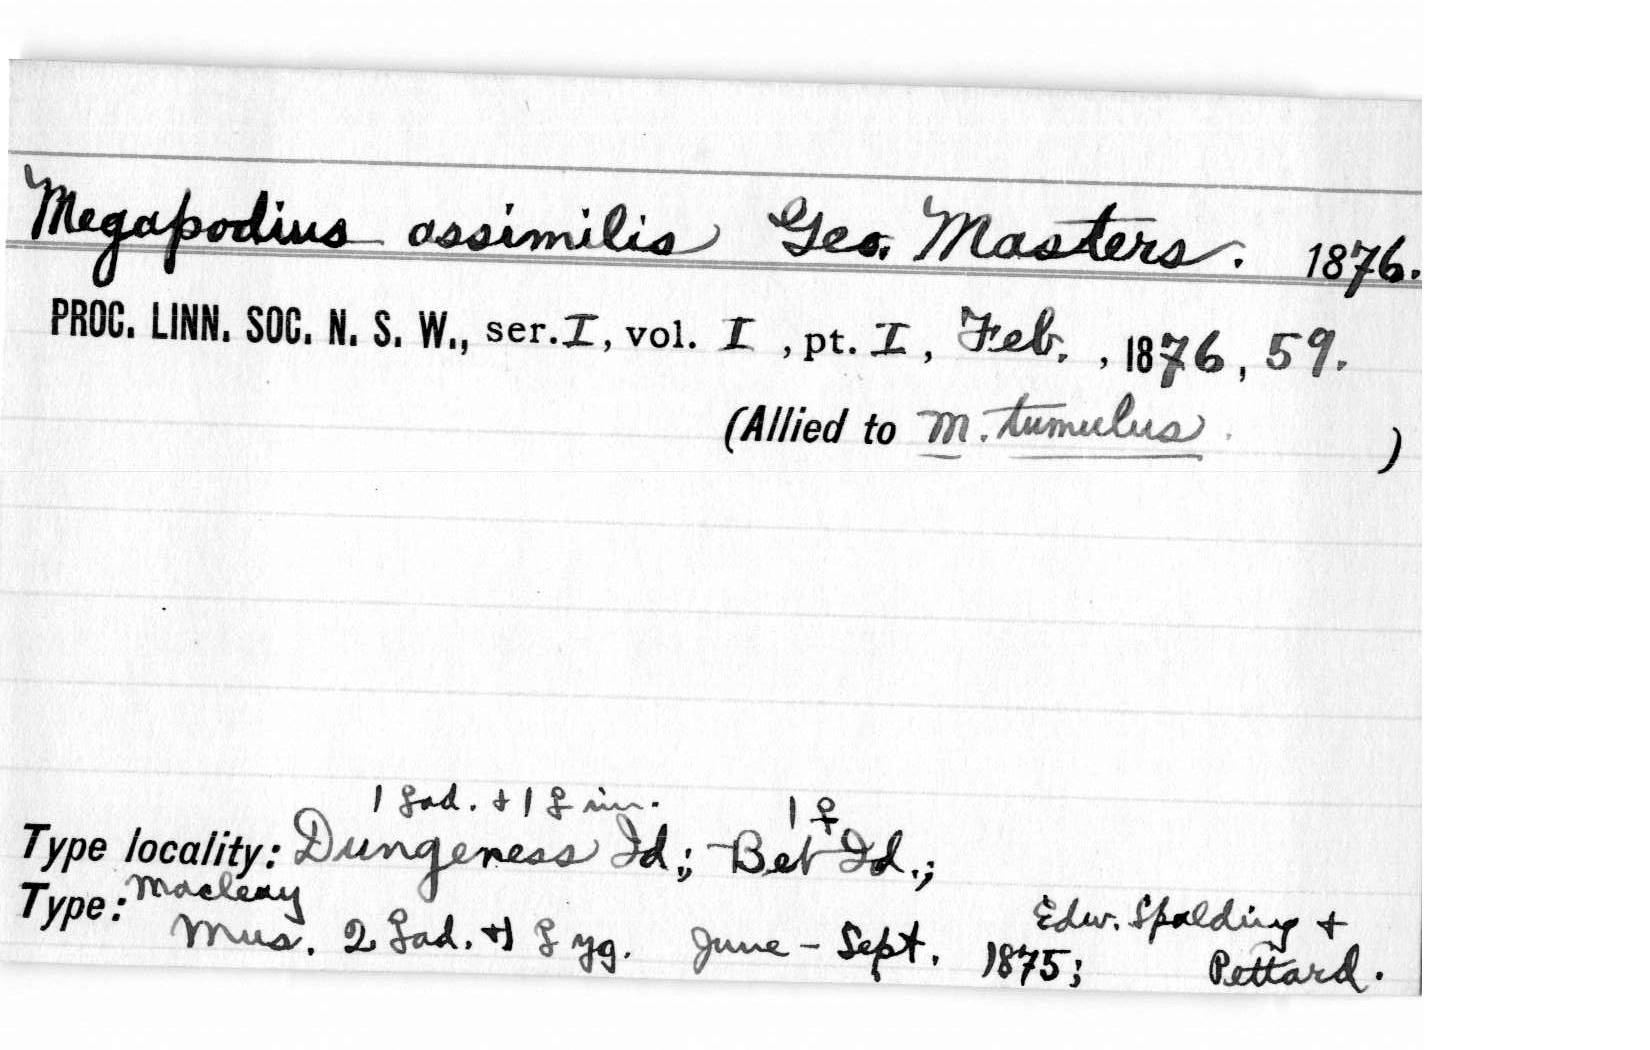 Megapodius assimilis Geo. Masters. 1876.
PROC. LINN. SOC. N. S. W., ser. I, vol. I, pt. I, Feb., 1876, 59.
(Allied to M. tumulus.)
1 ♀ ad. + 1 ♀ im. 1 ♀
Type locality: Dungeness Id.; Bet Id.;
Type: Macleay
Mus. 2 ♀ ad. + 1 ♀ yg. June - Sept. 1875; Edw. Spalding +
Pettard.